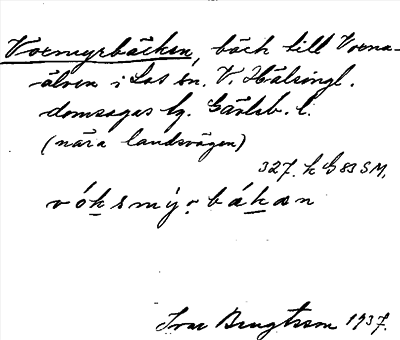 Voxmyrbäcken, bäck till Voxna-
älven i Los sn. V. Hälsingl.
domsagas tg. Gävleb. l.
(nära landsvägen)
327. h G 83 SM.
vóksmý.bákan
Ivar Bengtsson 1937.